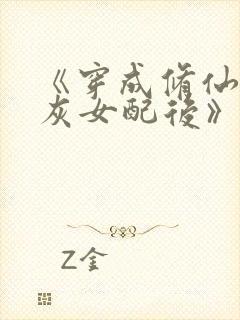 《穿成修仙
灰女配後》
Z金